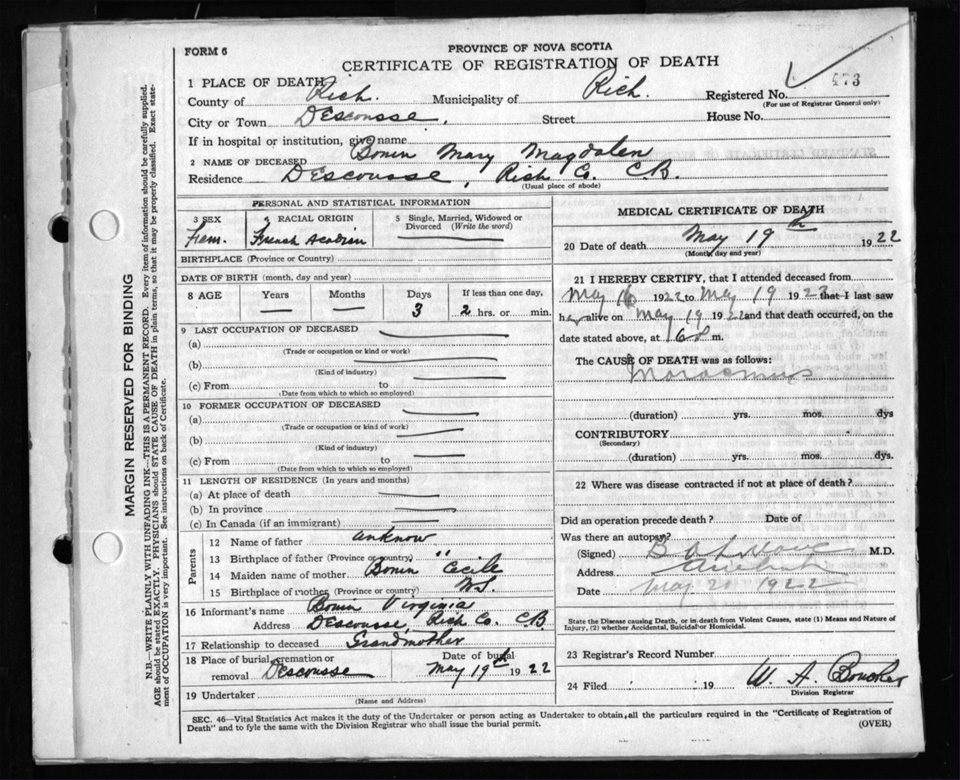 FORM 6
PROVINCE OF NOVA SCOTIA
CERTIFICATE OF REGISTRATION OF DEATH
1 PLACE OF DEATH
County of Rich. Municipality of Rich. Registered No. 473
(For use of Registrar General only)
City or Town DEscousse, Street House No.
If in hospital or institution, give name
2 NAME OF DECEASED Bonin Mary Magdalen
Residence DEscousse, Rich Co. C.B.
(Usual place of abode)
PERSONAL AND STATISTICAL INFORMATION
3 SEX RACIAL ORIGIN 5 Single, Married, Widowed or Divorced (Write the word)
Fem. French Acadian
BIRTHPLACE (Province or Country)
DATE OF BIRTH (month, day and year)
8 AGE Years Months Days If less than one day,
— — 3 2 hrs. or min.
9 LAST OCCUPATION OF DECEASED
(a)
(Trade or occupation or kind or work)
(b)
(Kind of industry)
(c) From to
(Date from which to which so employed)
10 FORMER OCCUPATION OF DECEASED
(a)
(Trade or occupation or kind of work)
(b)
(Kind of industry)
(c) From to
(Date from which to which so employed)
11 LENGTH OF RESIDENCE (In years and months)
(a) At place of death
(b) In province
(c) In Canada (if an immigrant)
Parents
12 Name of father unknow
13 Birthplace of father (Province or country) "
14 Maiden name of mother Bonin Cecile
15 Birthplace of mother (Province or country) N.S.
16 Informant's name Bonin Virginia
Address DEscousse, Rich Co. C.B
17 Relationship to deceased Grandmother
18 Place of burial, cremation or removal DEscousse Date of burial May 19th 1922
19 Undertaker
(Name and Address)
MEDICAL CERTIFICATE OF DEATH
20 Date of death May 19th 1922
(Month, day and year)
21 I HEREBY CERTIFY, that I attended deceased from
May 16 1922 to May 19 1922 that I last saw
her alive on May 19 1922 and that death occurred, on the
date stated above, at m.
The CAUSE OF DEATH was as follows:
Marasmus
(duration) yrs. mos. dys
CONTRIBUTORY
(Secondary)
(duration) yrs. mos. dys.
22 Where was disease contracted if not at place of death?
Did an operation precede death? Date of
Was there an autopsy?
(Signed) M.D.
Address Arichat
Date May 1922
State the Disease causing Death, or in death from Violent Causes, state (1) Means and Nature of
Injury, (2) whether Accidental, Suicidal or Homicidal.
23 Registrar's Record Number
24 Filed 19 W. A.
Division Registrar
SEC. 46—Vital Statistics Act makes it the duty of the Undertaker or person acting as Undertaker to obtain all the particulars required in the "Certificate of Registration of
Death" and to fyle the same with the Division Registrar who shall issue the burial permit.
(OVER)
MARGIN RESERVED FOR BINDING
N.B.—WRITE PLAINLY WITH UNFADING INK—THIS IS A PERMANENT RECORD. Every item of information should be carefully supplied.
AGE should be stated EXACTLY. PHYSICIANS should STATE CAUSE OF DEATH in plain terms, so that it may be properly classified. Exact state-
ment of OCCUPATION is very important. See instructions on back of Certificate.